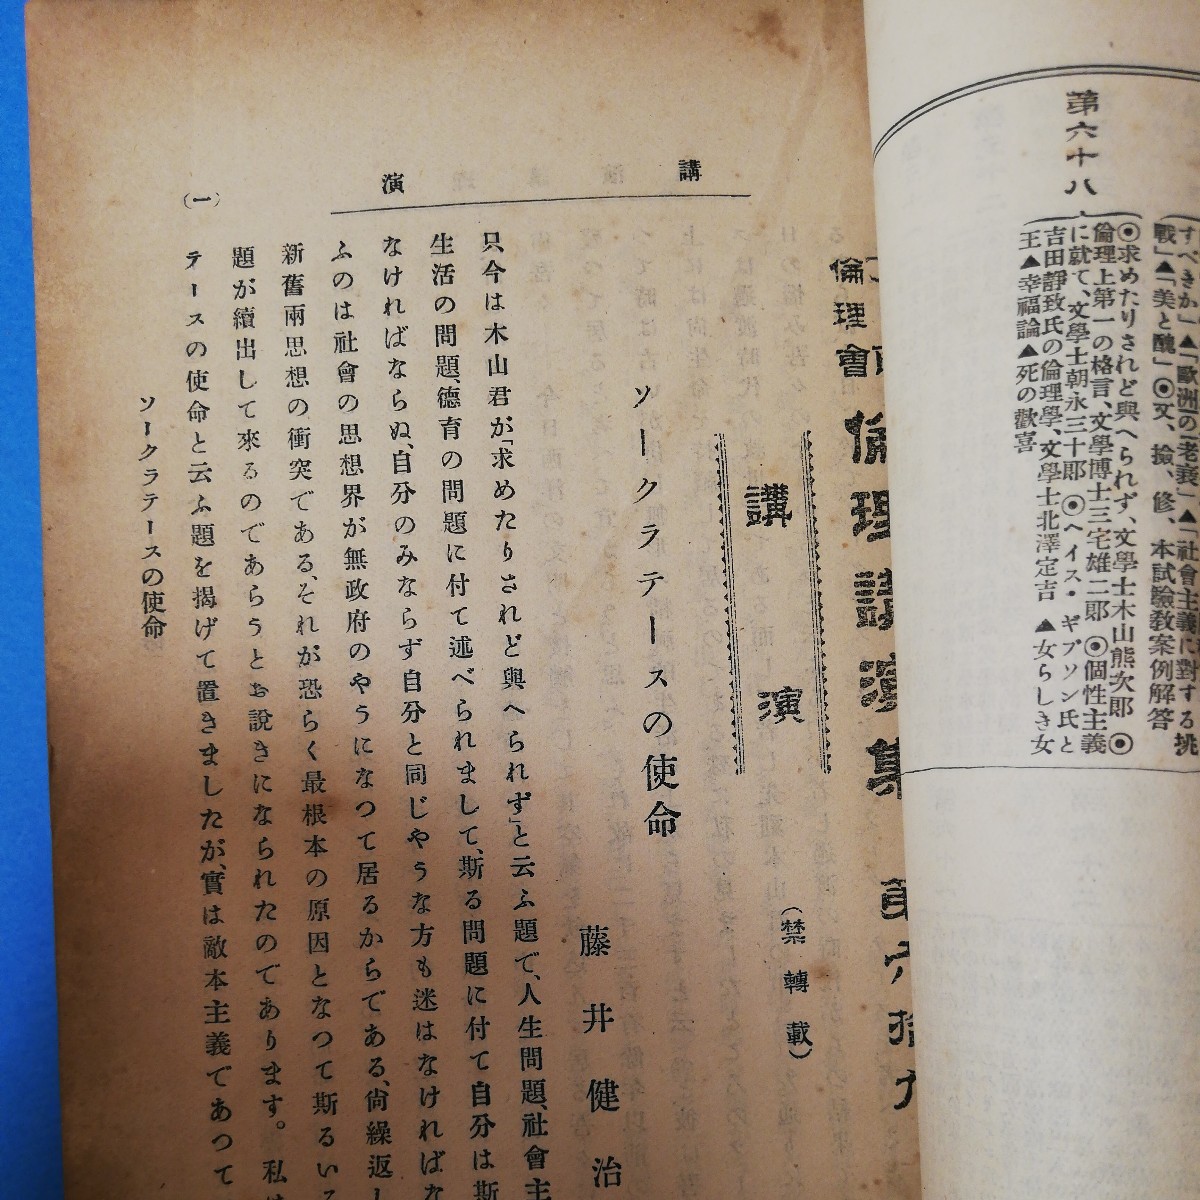 第六十八
すべきか」▲「歐洲の「老衰」▲「社會主義に對する挑
戰」▲「美と醜」◉文、撿、修、本試驗敎案例解答
◉求めたりされど與へられず、文學士木山熊次郎 ◉
倫理上第一の格言、文學博士三宅雄二郎 ◉個性主義
に就て、文學士朝永三十郎 ◉ヘイス・ギブソン氏と
吉田靜致氏の倫理學、文學士北澤定吉 ▲女らしき女
王▲幸福論▲死の歡喜
講演
倫理會
倫理講演集
第六拾九
講演
(禁轉載)
ソークラテースの使命
藤井健治
只今は木山君が「求めたりされど與へられず」と云ふ題で、人生問題、社會主
生活の問題、德育の問題に付て述べられまして、斯る問題に付て自分は斯
なければならぬ、自分のみならず自分と同じやうな方も迷はなければな
ふのは社會の思想界が無政府のやうになつて居るからである、尙繰返し
新舊兩思想の衝突である、それが恐らく最根本の原因となつて斯るいろ
題が續出して來るのであらうとお說きになられたのであります。私は
テースの使命と云ふ題を揭げて置きましたが、實は敵本主義であつて
ソークラテースの使命
(一)